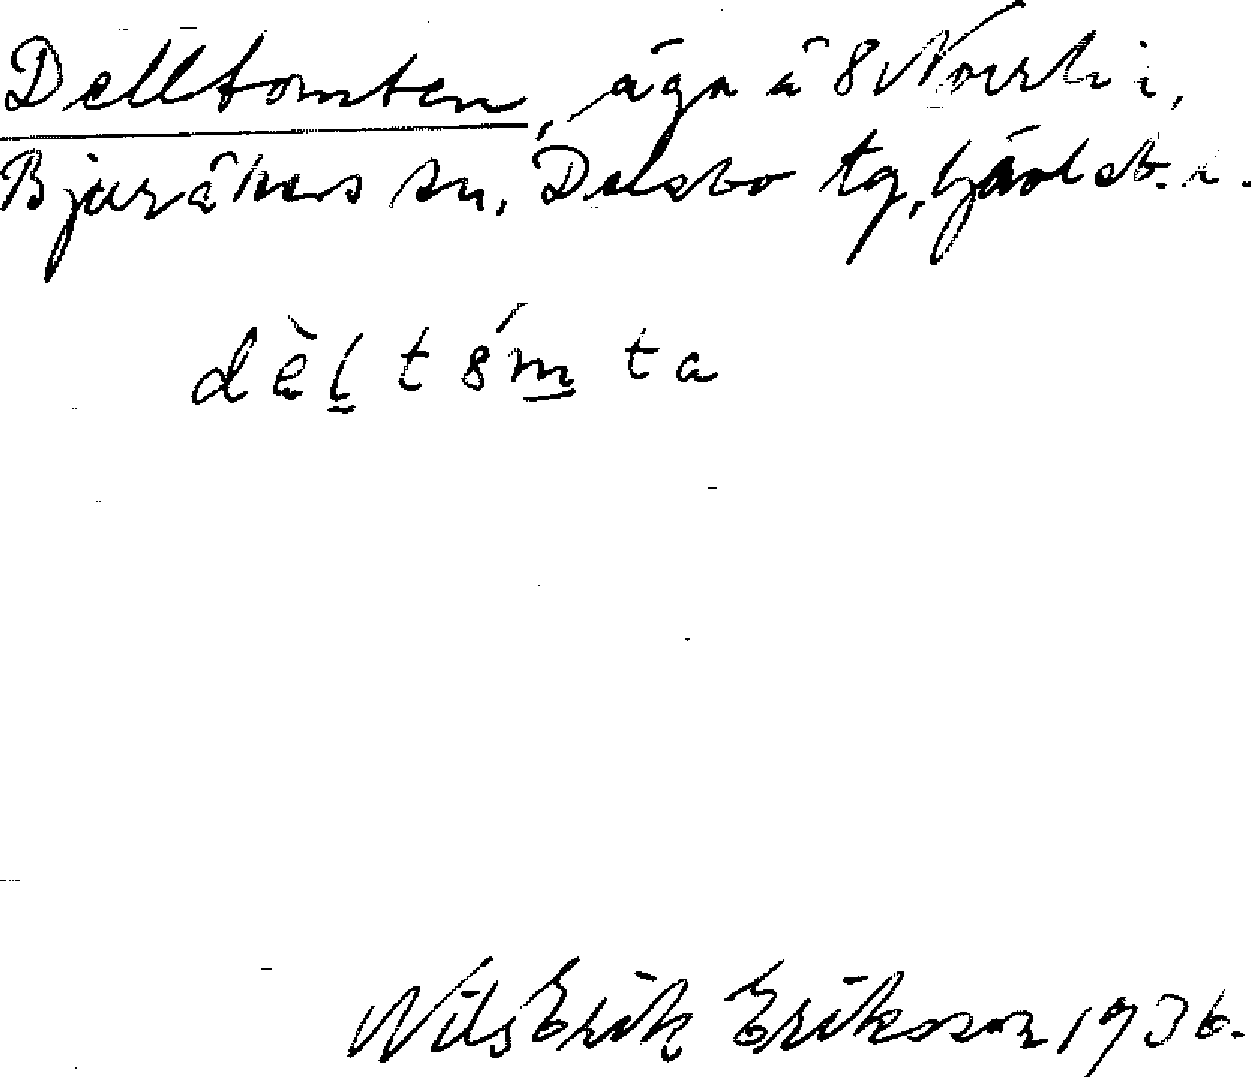 Delltomten, äga å 8 Norrb i,
Bjuråkers sn, Delsbo tg, Gävleb. l.
dèl tómta
Nils Erik Eriksson 1936.